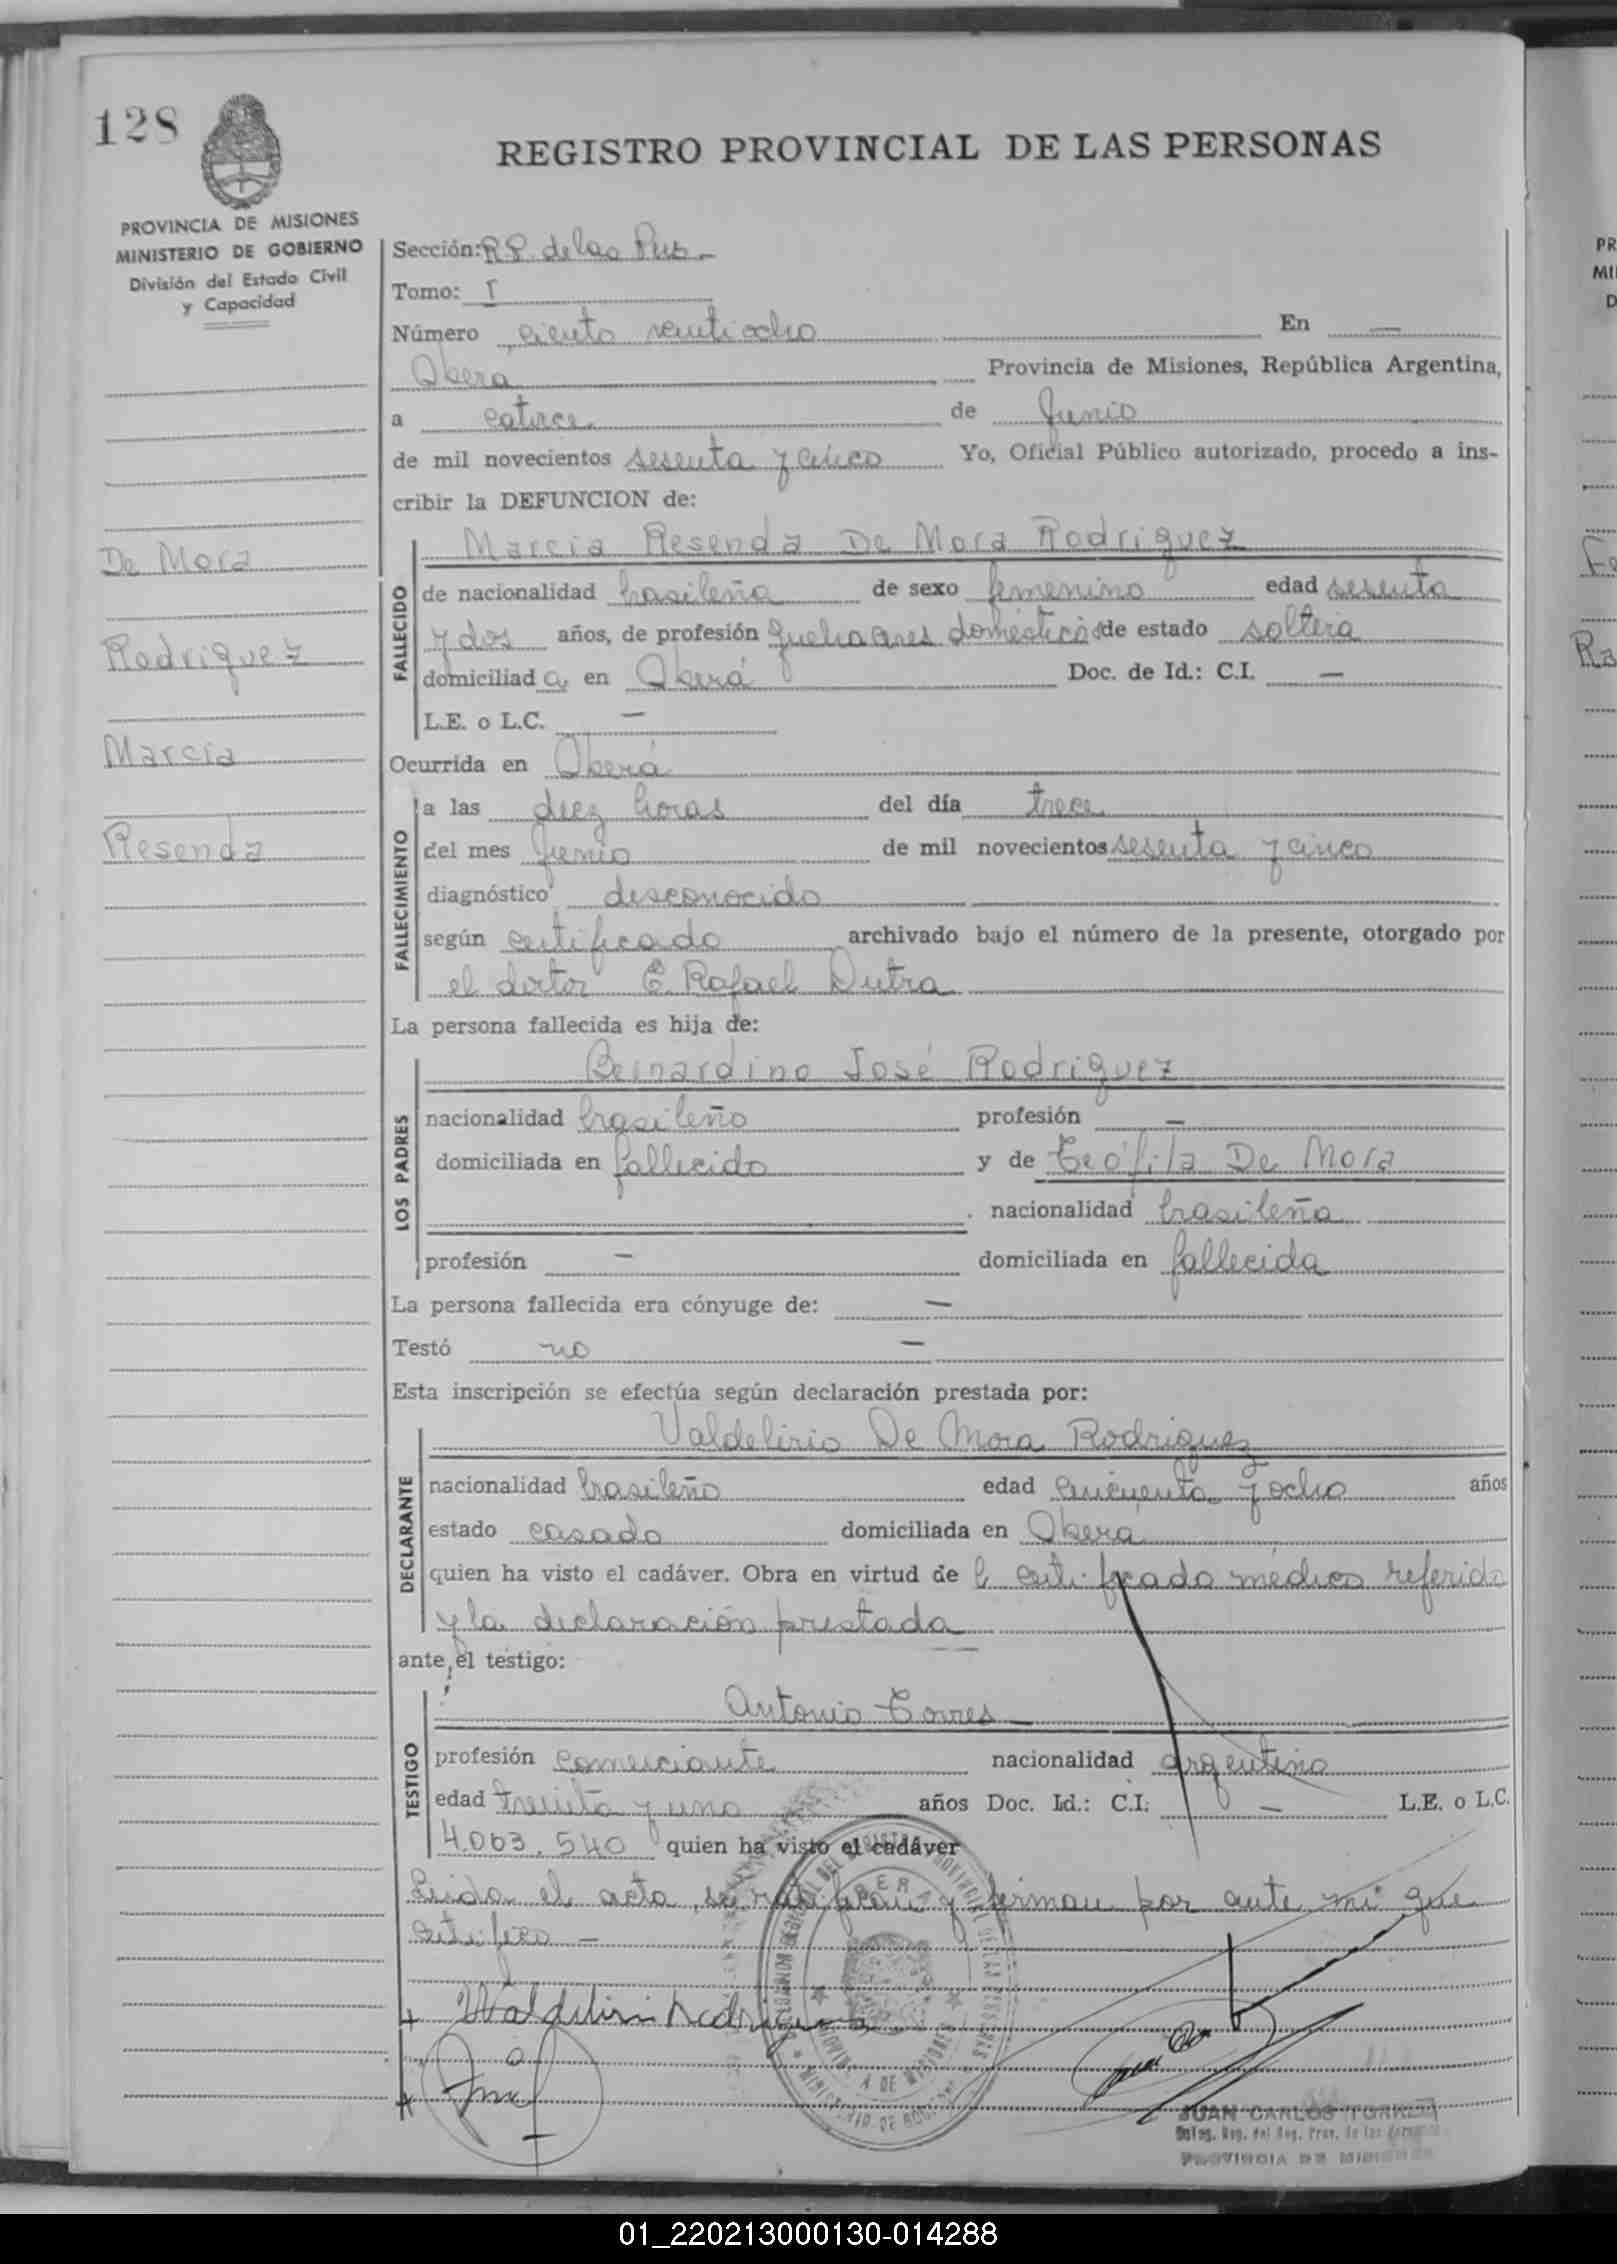 128
REGISTRO PROVINCIAL DE LAS PERSONAS
PROVINCIA DE MISIONES
MINISTERIO DE GOBIERNO
División del Estado Civil
y Capacidad
De Mora
Rodriguez
Marcia
Resenda
Sección: R.P. de las Pers.-
Tomo: I
Número ciento veintiocho En —
Oberá Provincia de Misiones, República Argentina,
a catorce de Junio
de mil novecientos sesenta y cinco Yo, Oficial Público autorizado, procedo a ins-
cribir la DEFUNCION de:
FALLECIDO
Marcia Resenda De Mora Rodriguez
de nacionalidad brasileña de sexo femenino edad sesenta
y dos años, de profesión quehaceres domésticos de estado soltera
domiciliad a en Oberá Doc. de Id.: C.I. —
L.E. o L.C. —
Ocurrida en Oberá
FALLECIMIENTO
a las diez horas del día trece
del mes Junio de mil novecientos sesenta y cinco
diagnóstico desconocido
según certificado archivado bajo el número de la presente, otorgado por
el doctor E. Rafael Dutra
La persona fallecida es hija de:
LOS PADRES
Bernardino José Rodriguez
nacionalidad brasileño profesión —
domiciliada en fallecido y de Teófila De Mora
nacionalidad brasileña
profesión — domiciliada en fallecida
La persona fallecida era cónyuge de: —
Testó no —
Esta inscripción se efectúa según declaración prestada por:
DECLARANTE
Valdelirio De Mora Rodriguez
nacionalidad brasileño edad cincuenta y ocho años
estado casado domiciliada en Oberá
quien ha visto el cadáver. Obra en virtud de l certificado médico referido
y la declaración prestada
ante el testigo:
TESTIGO
Antonio Torres
profesión comerciante nacionalidad argentino
edad treinta y uno años Doc. Id.: C.I: — L.E. o L.C.
4.063.540 quien ha visto el cadáver
Leida el acta, se ratifican y firman por ante mi que
certifico —
Waldelirio Rodrigues
OBERA
PROVINCIA DE MISIONES
MINISTERIO DE GOBIERNO
JUAN CARLOS TORRES
PROVINCIA DE MISIONES
01_220213000130-014288